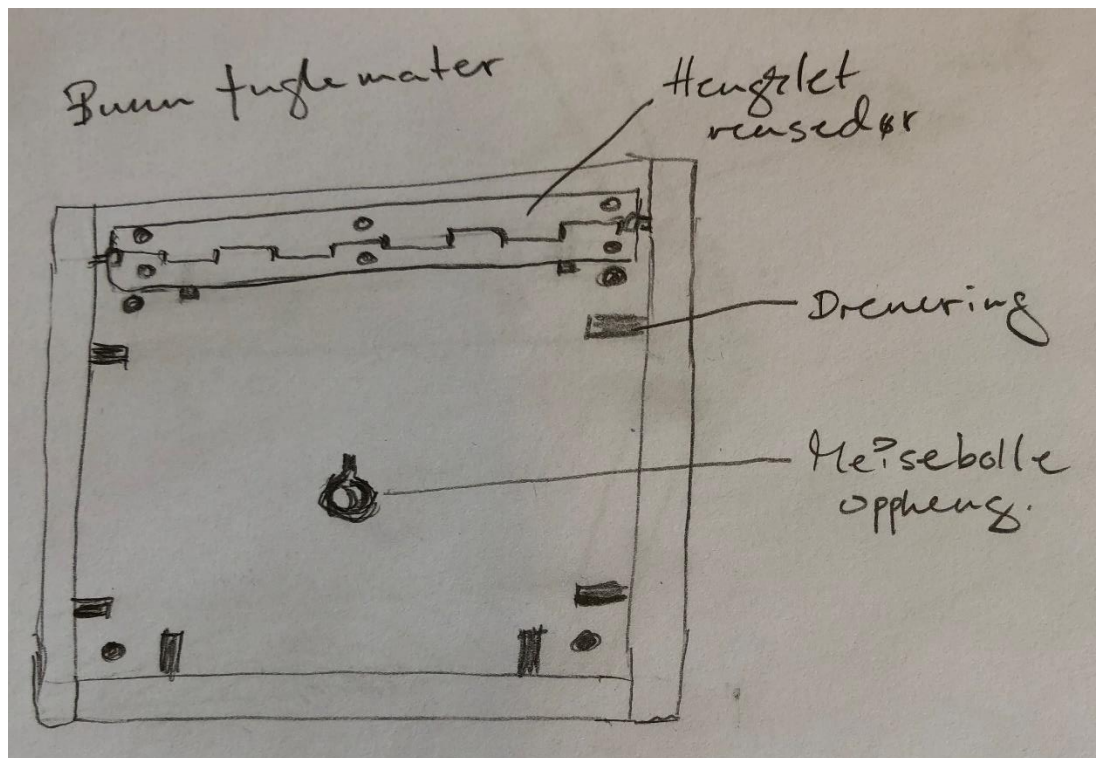 Bunn fuglemater
Hengslet
rensedør
Drenering
Meisebolle
oppheng.